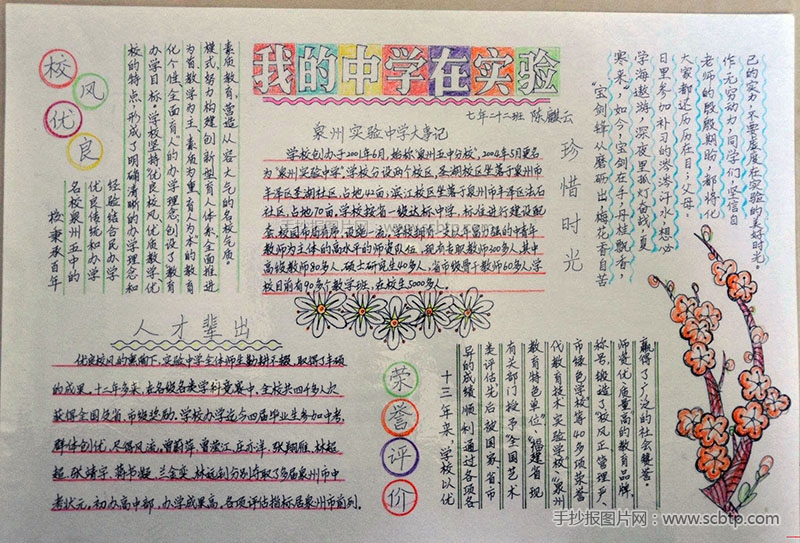 我的中学在实验
七年二十二班 陈麒云
校风优良
校秉承百年
名校泉州五中的
优良传统和办学
经验结合民办学
校的特点,形成了明确清晰的办学理念和
办学目标。学校坚持"优良校风、优质教学、优
化个性、全面育人"的办学理念,创设了教育
为首、教学为主、素质为重、育人为本的教育
模式,努力构建创新型育人体系,全面推进
素质教育,营造从容大气的名校气质。
泉州实验中学大事记
学校创办于2001年6月,始称"泉州五中分校",2004年5月更名
为"泉州实验中学"。学校分设两个校区,圣湖校区坐落于泉州市
丰泽区圣湖社区,占地42亩;滨江校区坐落于泉州市丰泽区法石
社区,占地70亩。学校按省一级达标中学,标准进行建设配
套,校园布局有序,设施一流。学校拥有一支以年富力强的中青年
教师为主体的高水平的师资队伍,现有专职教师300多人,其中
高级教师80多人,硕士研究生40多人,省市级骨干教师60多人,学
校目前有90多个教学班,在校生5000多人。
珍惜时光
"宝剑锋从磨砺出,梅花香自苦
寒来"。如今,宝剑在手,丹桂飘香,
学海遨游,深夜里孤灯奋战,夏
日里参加补习的涔涔汗水,想必
大家都还历历在目,父母、
老师的殷殷期盼,都将化
作无穷动力,同学们,坚信自
己的实力,不要虚度在实验的美好时光。
人才辈出
优良校风的熏陶下,实验中学全体师生勤耕不辍,取得了丰硕
的成果。十二年多来,在各级各类学科竞赛中,全校共四千多人次
获得全国及省、市级奖励。学校办学迄今四届毕业生参加中考,
群体创优,尽得风流,曾蔚萍、曾滢江、庄亦洋、张翔雁、林超
超、张靖宇、蒋书凝、兰金奕、林冠利分别夺取了多届泉州市中
考状元。初办高中部,办学成果高,各项评估指标居泉州市前列。
荣誉评价
十三年来,学校以优
异的成绩顺利通过各项各
类评估,先后被国家、省、市
有关部门授予"全国艺术
教育特色单位""福建省现
代教育技术实验学校""泉州
市绿色学校等40多项荣誉
称号,锻造了"校风正、管理严、
师资优、质量高"的教育品牌,
赢得了广泛的社会赞誉。
手抄报图片网:www.scbtp.com